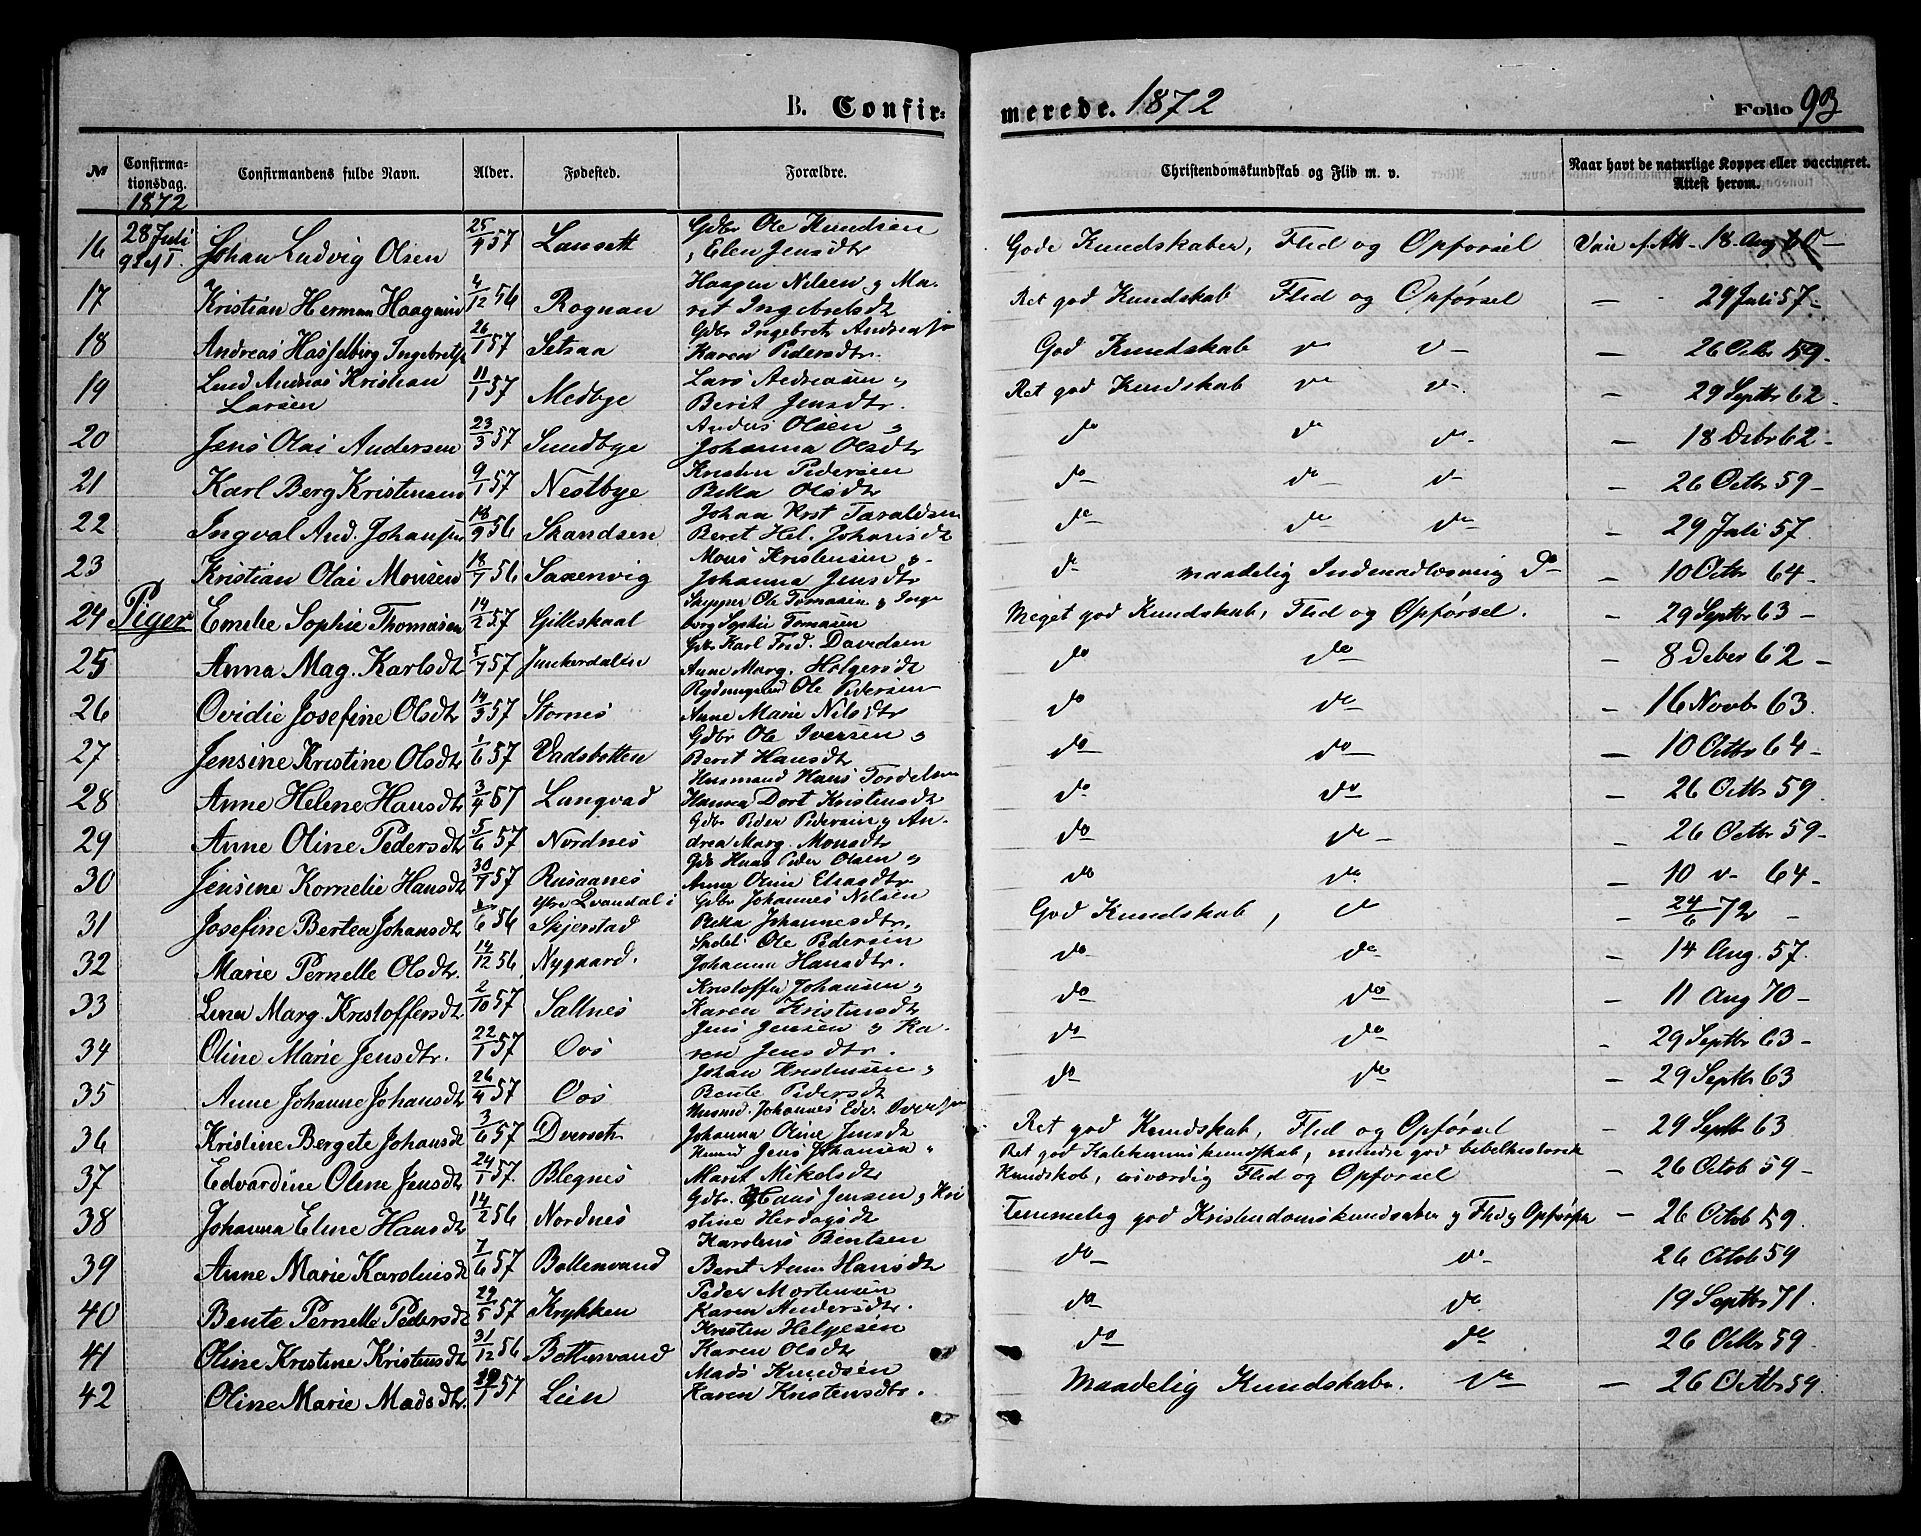 B. Confir-
merede. 1872
Folio 93
№
Confirma-
tionsdag.
1872
Confirmandens fulde Navn.
Alder.
Fødested.
Forældre.
Christendomskundskab og Flid m. v.
Naar havt de naturlige Kopper eller vaccineret.
Attest herom.
16 28 Juli Johan Ludvig Olsen 57 Gdbr Ole Knudsen
Elen Jensdtr Gode Kundskaber, Flid og Opførsel 18 Aug
17 Kristian Herman 4/12 56 Rognan Haagen Nilsen og Ma-
rit Ingebretsdtr Ret god Kundskab Flid og Opførsel — 29 Juli 57
18 Andreas Hasselberg Ingebretss 26/1 57 Setsaa Gdbr Ingebret
Karen Pedersdtr. God Kundskab do do — 26 Octbr 59
19 Lund Andreas Kristian
Larsen 11/1 57 Medbye Lars Andreasen og
Berit Jensdtr. Ret god Kundskab do do — 29 Septbr 62
20 Jens Olai Andersen 23/3 57 Sundbye Anders Olsen og
Johanna Olsdtr do do do — 18 Decbr 62
21 Karl Berg Kristensen 9/1 57 Nestbye Kristen Pedersen
Olsdtr do do do — 26 Octbr 59
22 Ingval And. Johansen 18/9 56 Skandsen Johan Krst Taraldsen
Beret Hel. Johansdtr do do do 29 Juli 57.
23 Kristian Olai Monsen 56 Saxenvig Mons Kristensen og
Johanna Jensdtr do maadelig do — 10 Octbr 64
24 Piger Emilie Sophie Thomasen 14/2 57 Gilleskaal Skipper Ole Tomasen og Inge
borg Sophie Tomasen Meget god Kundskab, Flid og Opførsel. — 29 Septbr 63
25 Anna Mag. Karlsdtr 57 Junkerdalen Gdb Karl Fred. Davidsen
Anne Marg. Holgersdtr do do — 8 Decbr 62
26 Ovidie Josefine Olsdtr 14/3 57 Stornes Rydningsmd Ole Pedersen
Anne Marie Nilsdtr do do — 16 Novbr 63.
27 Jensine Kristine Olsdtr 1/6 57 Vadsbotten Gdbr Ole Iversen og
Berit Hansdtr do do — 10 Octbr 64
28 Anne Helene Hansdtr 3/4 57 Lungvad Husmand Hans
Hanna Dort Kristensdtr do do 26 Octbr 59.
29 Anne Oline Pedersdtr 5/6 57 Nordnes Gdbr Peder Pedersen og An-
drea Marg. Monsdtr do do 26 Octbr 59
30 Jensine Kornelie Hansdtr 57 Rusaanes Gdb Hans Peder Olsen og
Anne Oline Eliasdtr do do — 10 do 64
31 Josefine Bertea Johansdtr 56 Ytre Qvandal i
Skjerstad Gdbr Johannes Nilsen
Johannesdtr. God Kundskab, do — 24/6 72
32 Marie Pernelle Olsdtr. 14/12 56 Nygaard. Ole Pedersen
Johanna Hansdtr. do do — 14 Aug. 57.
33 Lena Marg. Kristoffersdtr 2/10 57 Saltnes Kristoffer Johansen og
Karen Kristensdtr do do — 11 Aug 70
34 Oline Marie Jensdtr. 22/1 57 Ovs Jens Jensen og Ka-
ren Jensdtr. do do — 29 Septbr 63
35 Anne Johanne Johansdtr 26/4 57 Ovs Johan Kristensen og
Bente Pedersdtr do do — 29 Septbr 63
36 Kristine Bergete Johansdtr 3/6 57 Dverset Husmd. Johannes Edv. Iversen
Johanna Oline Jensdtr Ret god Kundskab, Flid og Opførsel — 29 Septbr 63
37 Edvardine Oline Jensdtr 24/1 57 Blegnes Husmd Jens Johansen og
Marit Mikelsdtr Ret god Katekismuskundskab, mindre god bibelhistorisk
Kundskab, roværdig Flid og Opførsel — 26 Octob 59
38 Johanna Eline Hansdtr 14/2 56 Nordnes Gdbr. Hans Jensen og Kri
stine Herdagsdtr Temmelig god Kristendomskundskaber og Flid og Opførsel — 26 Octob 59.
39 Anne Marie Karolinsdtr 7/6 57 Bottenvand Karolius Bentsen
Berit Anne Hansdtr do do 26 Octob 59
40 Bente Pernelle Pedersdtr 29/5 57 Krykken Peder Mortensen
Karen Andersdtr. do do 19 Septbr 71.
41 Oline Kristine Kristensdtr 31/12 56 Bottenvand Kristen Helgesen
Karen Olsdtr do do — 26 Octbr 59.
42 Oline Marie Madsdtr. 57 Lein Mads Knudsen
Karen Kristensdtr. Maadelig Kundskab. do — 26 Octbr 59.